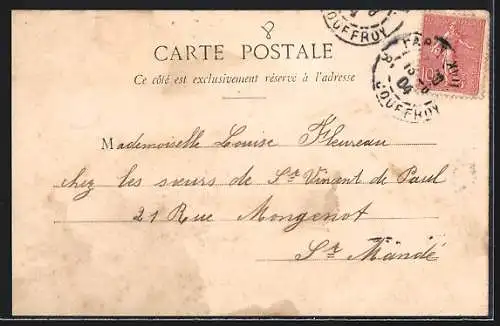 8
CARTE POSTALE
Ce côté est exclusivement réservé à l'adresse
JOUFFROY
PARIS
10
04
JOUFFROY
Mademoiselle Louise Fleureau
chez les sœurs de St Vincent de Paul
21 Rue Mongenot
St Mandé